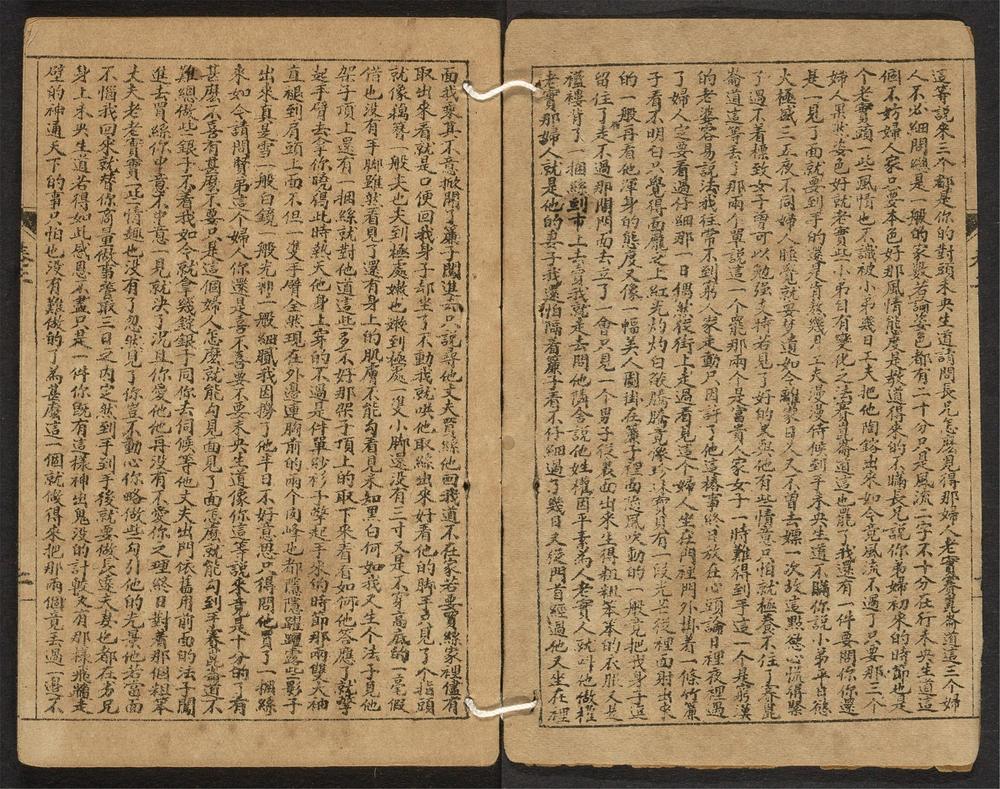 這等說來三個都是你的對頭未央生道請問長兄怎麼見得那婦人老實賽崑崙道這三個婦
人不必細問總是一般的家數若論姿色都有二十分只是風流二字不十分在行未央生道這
個不妨婦人家只要本色好那風情態度是教道得來的不瞞長兄說你弟婦初來的時節也是
個老實頭一些風情也不識被小弟幾日工夫把他陶鎔出來如今竟風流不過了只要那三個
婦人果然姿色好就老實些小弟自有變化之法賽崑崙道這也罷了我還有一件要問你你還
是一見了面就要到手的還是肯熬幾日工夫漫漫待候到手未央生道不瞞你說小弟平日慾
火極盛三五夜不同婦人睡覺就要夢遺如今離家日久又不曾去嫖一次故這點慾心慌得緊
了遇不着標致女子曾可以勉強支持若見了好的又與他有些情意只怕就極養不住了賽崑
崙道這等丟了那兩個單說這一個罷那兩個是富貴人家女子一時難得到手這一個是窮漢
的老婆容易說法我往常不到窮人家走動只因許了你這樁事終日放在心頭論日裡夜裡遇
了婦人定要看過仔細那一日偶然從街上走過看見這個婦人坐在門裡門外掛着一條竹簾
子看不明白只覺得面龐之上紅光灼灼白氣騰騰竟像珍珠寶貝有一段光芒從裡面射出來
的一般再看他渾身的態度又像一幅美人圖掛在簾子裡面憑風吹動的一般竟把我身子這
留住了走不過那門面去立了一會只見一個男子從裡面出來生得粗粗笨笨的衣服又是
襤褸背了一捆絲到市上去賣我就走去問他隣舍說他姓權因平素為人老實人就叫他做權
老實那婦人就是他的妻子我還怕隔着簾子看不仔細過了幾日又從門首經過他又坐在裡
面我乘其不意掀開了簾子闖進去只說尋他丈夫買絲他回我道不在家若要買絲家裡儘有
取出來看就是口便回我身子却坐了不動我就哄他取絲出來好看他的脚手只見了个指頭
就像藕簪一般尖也尖到極處嫩也嫩到極處一雙小脚還沒有三寸又是不穿高底的一毫假
借也沒有手脚雖然看見了還有身上的肌膚不能勾看見未知黑白何如我又生个法子見他
架子頂上還有一捆絲就對他道這些多不好那架子頂上的取下來看看如何他答應了就擎
起手臂去拿你曉得此時熱天他身上穿的不過是件單紗衫子擎起手來倘時節那兩雙大袖
直褪到肩頭上面不但一隻手臂全然現在外邊連胸前的兩个肉峰也都隱隱躍躍露些影子
出來真是雪一般白鏡一般光神一般細膩我因擾了他半日不好意思只得問他買了一捆絲
來如今請問賢弟這个婦人你還是喜不喜要不要未央生道像你這等說來竟是十分的了有
甚麼不喜有甚麼不要只是這個婦人怎麼就能勾見面見了面怎麼就能勾到手賽崑崙道不
難總做些銀子不着我如今就拿幾錠銀子同你去伺候等他丈夫出門依舊用前面的法子闖
進去買絲你中意不中意一見就決了况且你愛他他再沒有不愛你之理終日對着那個粗笨
丈夫老老實實一些情趣也沒有了忽然見了你豈不動心你略做些勾引他的光景他若當面
不惱我回來就替你商量做事管取三日之內定然到手到手後就要做長遠夫妻也都在劣兄
身上未央生道若得如此感恩不盡只是一件你既有這樣神出鬼沒的計較又有那樣飛牆走
壁的神通天下的事只怕也沒有難做的了為甚麼這一個就做得來把那兩個竟丟過一邊不